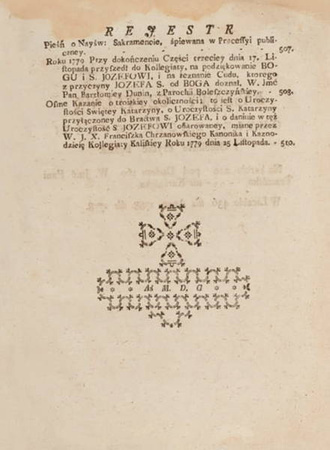 REJESTR
Pieśń o Nayśw: Sakramencie, śpiewana w Processyi publi-
czney. - - - - 507.
Roku 1779 Przy dokończeniu Części trzeciey dnia 17. Li-
stopada przyszedł do Kollegiaty, na podziękowanie BO-
GU i S. JOZEFOWI, i na zeznanie Cudu, ktorego
z przyczyny JOZEFA S. od BOGA doznał, W. Jmć
Pan Bartłomiey Dunin, z Parochii Boleszczyńskiey. - 508.
Osme Kazanie o troiakiey okoliczności: to iest o Uroczy-
stości Swiętey Katarzyny, o Uroczystości S. Katarzyny
przyłączoney do Bractwa S. JOZEFA, i o daniie w tęż
Uroczystość S. JOZEFOWI ofiarowaney, miane przez
W. J. X. Franciszka Chrzanowskiego Kanonika i Kazno-
dzieię Kollegiaty Kaliskiey Roku 1779 dnia 25 Listopada. - 510.
A M. D. G